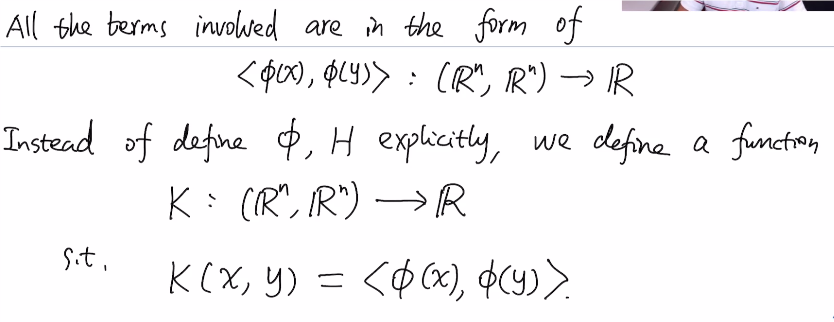 All the terms involved are in the form of
<ϕ(x), ϕ(y)> : (ℝⁿ, ℝⁿ) → ℝ
Instead of define ϕ, H explicitly, we define a function
K : (ℝⁿ, ℝⁿ) → ℝ
s.t.
K(x, y) = <ϕ(x), ϕ(y)>.